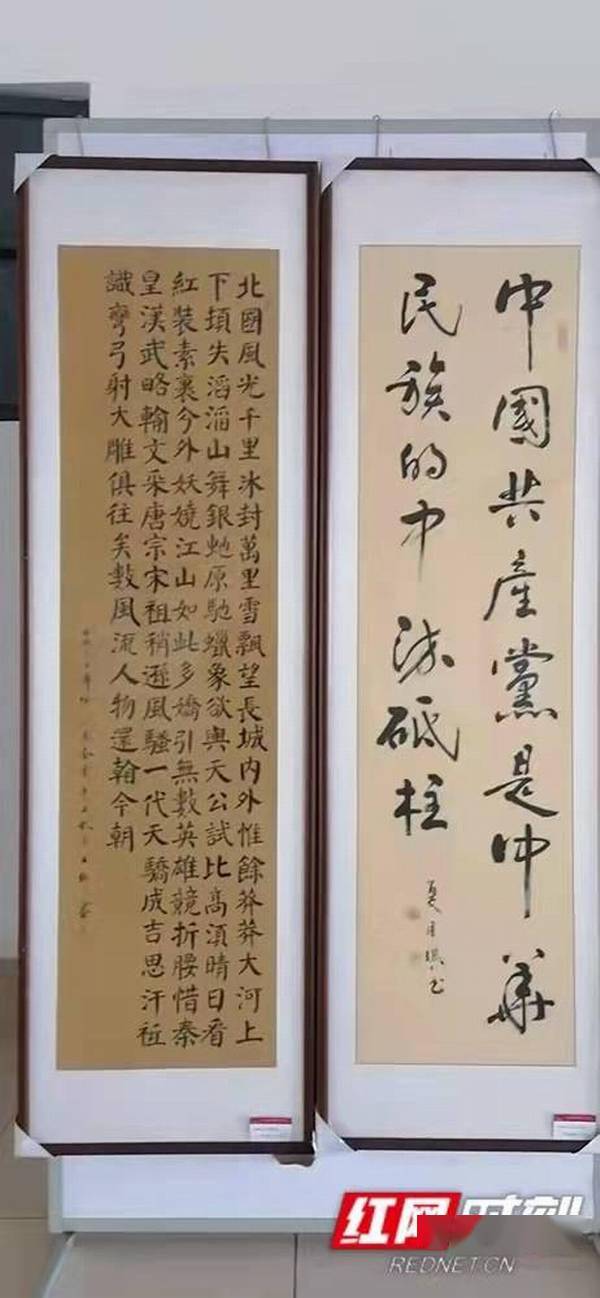 中國共產黨是中華
民族的中流砥柱
北國風光千里冰封萬里雪飄望長城內外惟餘莽莽大河上
下頓失滔滔山舞銀虵原馳蠟象欲與天公試比高須晴日看
紅裝素裹分外妖嬈江山如此多嬌引無數英雄競折腰惜秦
皇漢武略輸文采唐宗宋祖稍遜風騷一代天驕成吉思汗祗
識彎弓射大雕俱往矣數風流人物還翰今朝
红网时刻
REDNET.CN